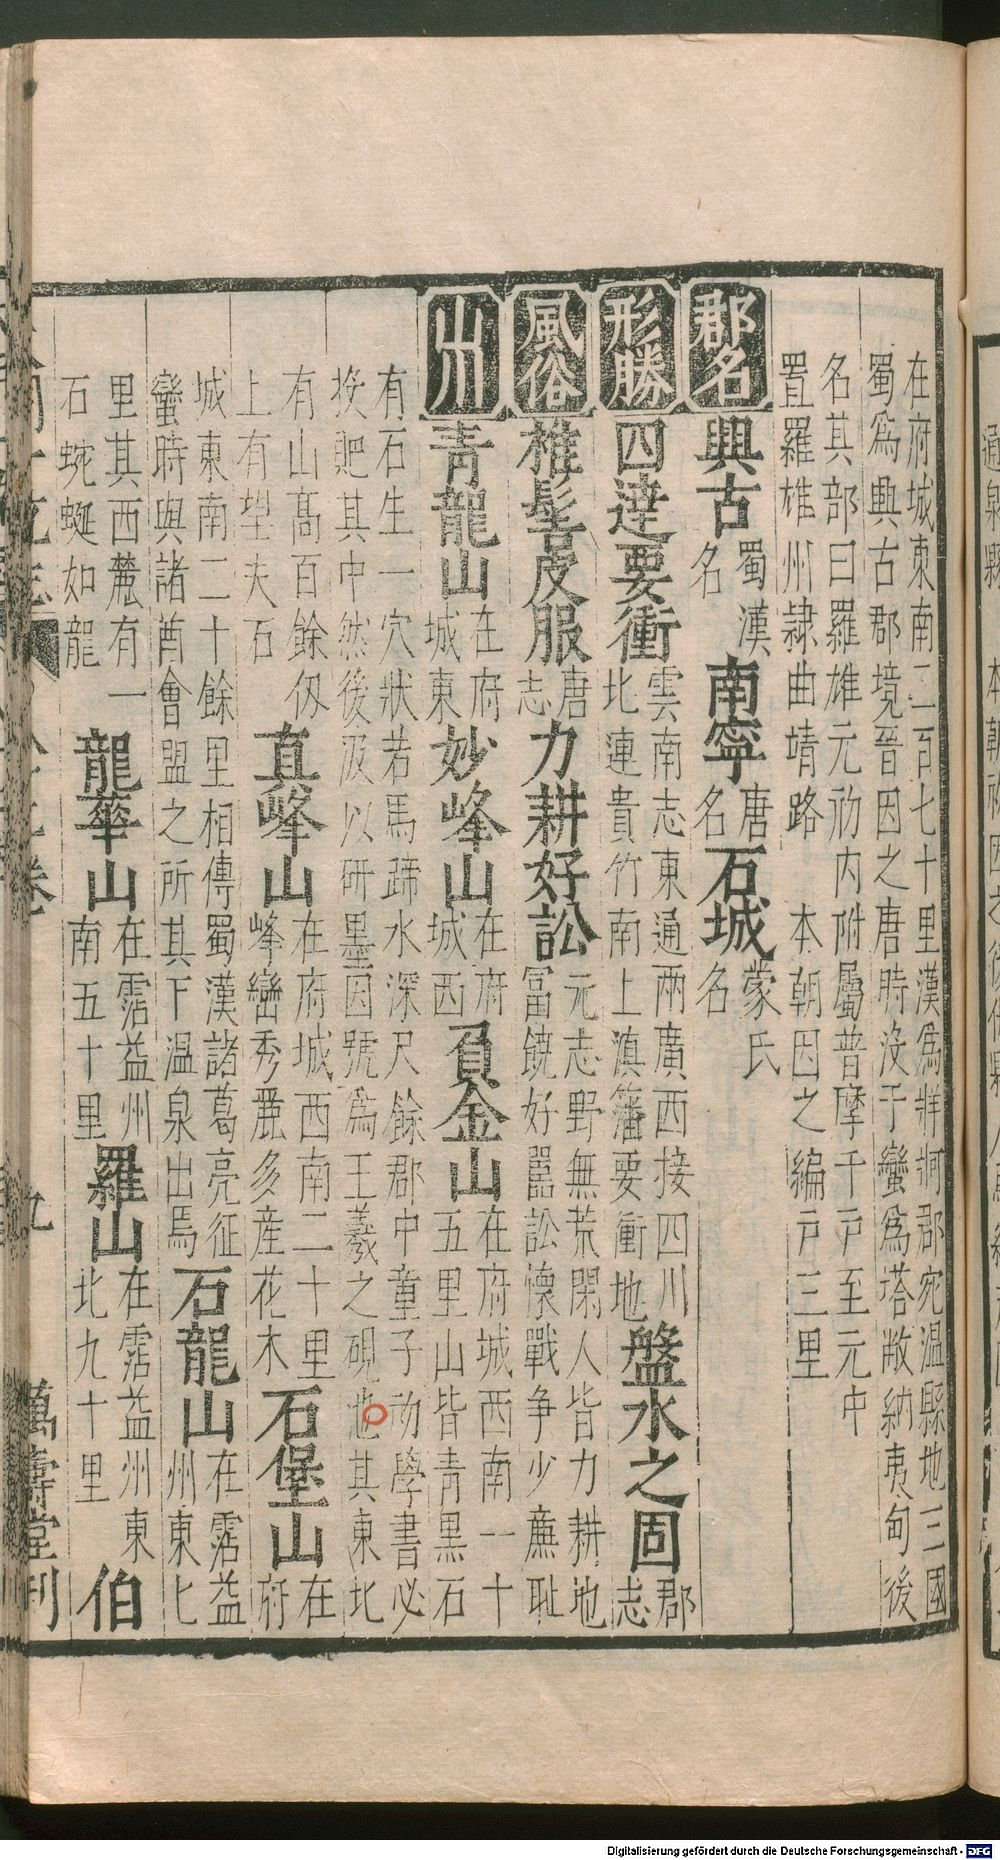 在府城東南二百七十里漢為牂牁郡宛温縣地三國
蜀為興古郡境晉因之唐時没于蠻為塔敝納夷甸後
名其部曰羅雄元初内附屬普摩千戸至元中
置羅雄州隷曲靖路 本朝因之編戸三里
郡名 興古 蜀漢名 南寧 唐名 石城 蒙氏名
形勝 四達要衝 雲南志東通兩廣西接四川北連貴竹南上滇藩要衝地 盤水之固 郡志
風俗 椎髻皮服 唐志 力耕好訟 元志野無荒閑人皆力耕地富饒好嚚訟懐戰争少亷耻
山川 青龍山 在府城東 妙峰山 在府城西 負金山 在府城西南一十五里山皆青黑石
有石生一穴狀若馬蹄水深尺餘郡中童子初學書必
投 其中然後汲以研墨因號為王羲之硯池其東北
有山髙百餘仭上有望夫石 真峰山 在府城西南二十里峰巒秀麗多産花木 石堡山 在府
城東南二十餘里相傳蜀漢諸葛亮征蠻時與諸酋會盟之所其下温泉出焉 石龍山 在霑益州東七
里其西麓有一石蜿蜒如龍 龍華山 在霑益州南五十里 羅山 在霑益州東北九十里 伯
九
萬壽堂刋
Digitalisierung gefördert durch die Deutsche Forschungsgemeinschaft - DFG